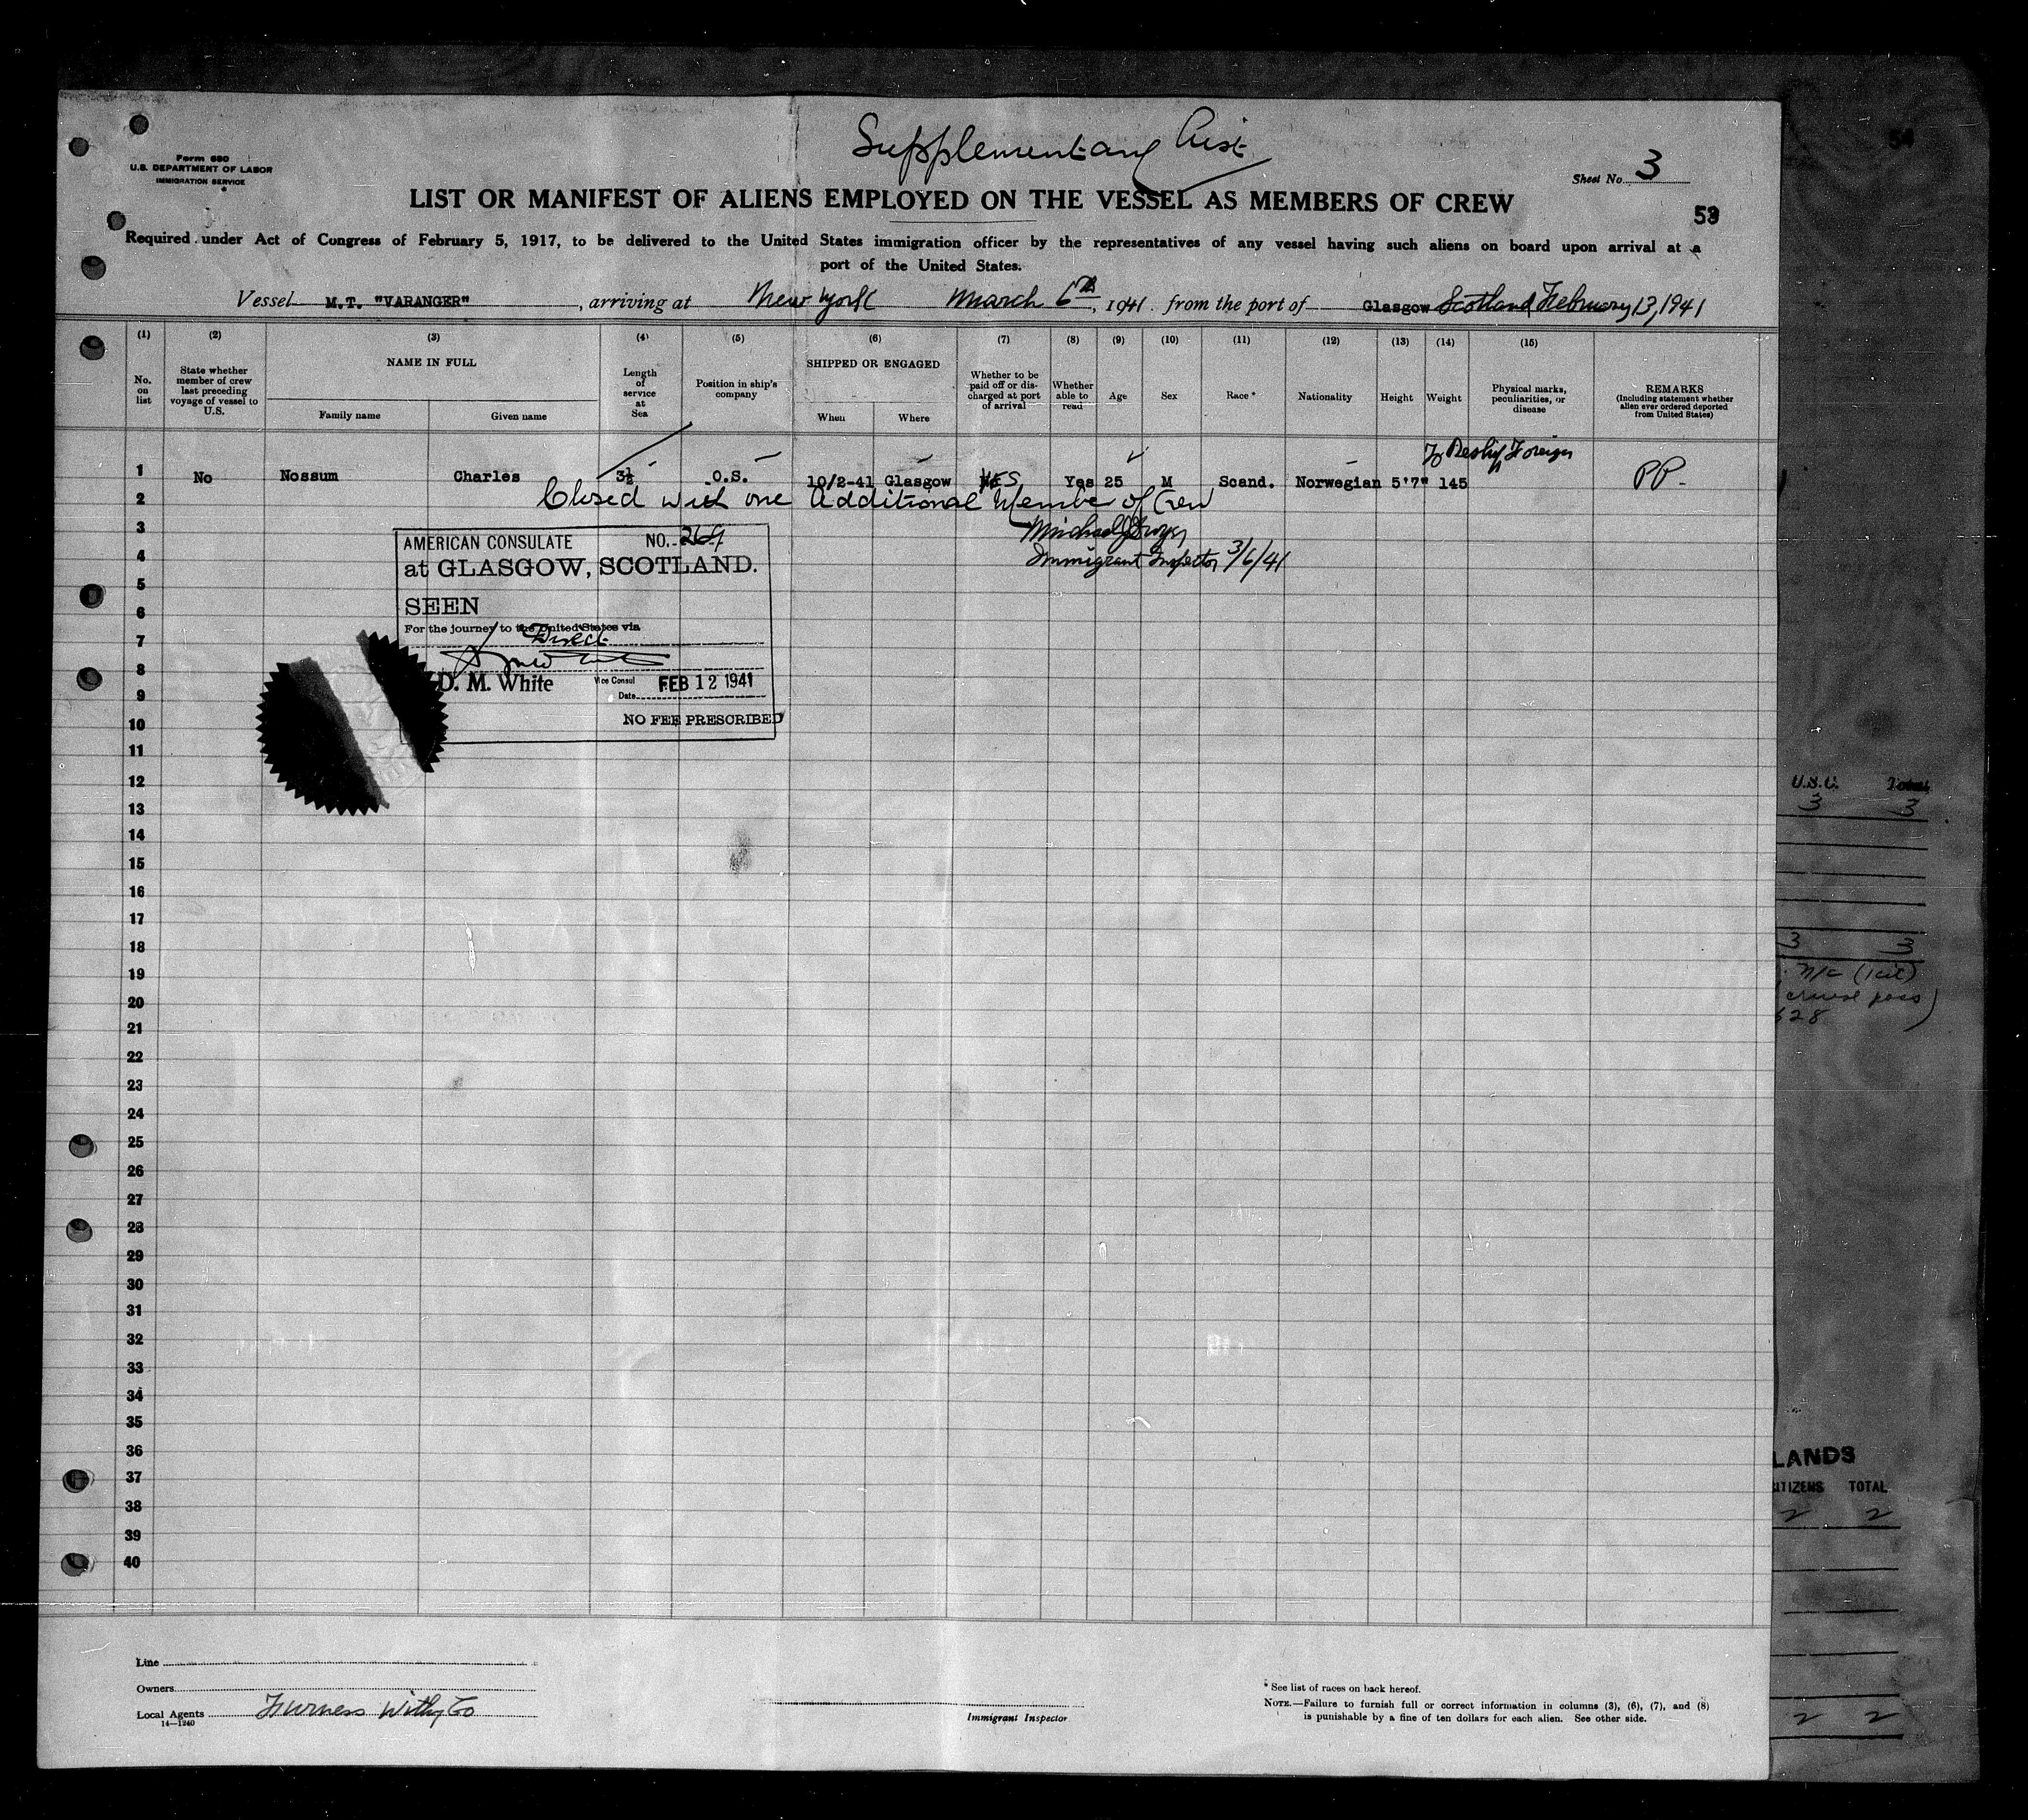 Supplementary List
Form 680
U.S. DEPARTMENT OF LABOR
IMMIGRATION SERVICE
Sheet No. 3
LIST OR MANIFEST OF ALIENS EMPLOYED ON THE VESSEL AS MEMBERS OF CREW
53
54
Required under Act of Congress of February 5, 1917, to be delivered to the United States immigration officer by the representatives of any vessel having such aliens on board upon arrival at a
port of the United States.
Vessel M.T. "VARANGER", arriving at New York March 6th, 1941. from the port of Glasgow Scotland February 13, 1941
(1) (2) (3) (4) (5) (6) (7) (8) (9) (10) (11) (12) (13) (14) (15)
No. on list
State whether member of crew last preceding voyage of vessel to U.S.
NAME IN FULL
Family name
Given name
Length of service at Sea
Position in ship's company
SHIPPED OR ENGAGED
When
Where
Whether to be paid off or discharged at port of arrival
Whether able to read
Age
Sex
Race *
Nationality
Height
Weight
Physical marks, peculiarities, or disease
REMARKS
(Including statement whether alien ever ordered deported from United States)
To Reship Foreign
1 No Nossum Charles 3½ O.S. 10/2-41 Glasgow YES Yes 25 M Scand. Norwegian 5'7" 145 PP.
2 Closed with one Additional Member of Crew
3
4 Immigrant Inspector 3/6/41
AMERICAN CONSULATE NO. 269
at GLASGOW, SCOTLAND.
SEEN
For the journey to the United States via
Direct
D. M. White Vice Consul
Date FEB 12 1941
NO FEE PRESCRIBED
5
6
7
8
9
10
11
12
13
14
15
16
17
18
19
20
21
22
23
24
25
26
27
28
29
30
31
32
33
34
35
36
37
38
39
40
U.S.C. Total
3 3
3 3
n/c
628
LANDS
ITIZENS TOTAL
2 2
2 2
Line
Owners
Local Agents Furness Withy Co
14—1240
Immigrant Inspector
* See list of races on back hereof.
NOTE.—Failure to furnish full or correct information in columns (3), (6), (7), and (8)
is punishable by a fine of ten dollars for each alien. See other side.